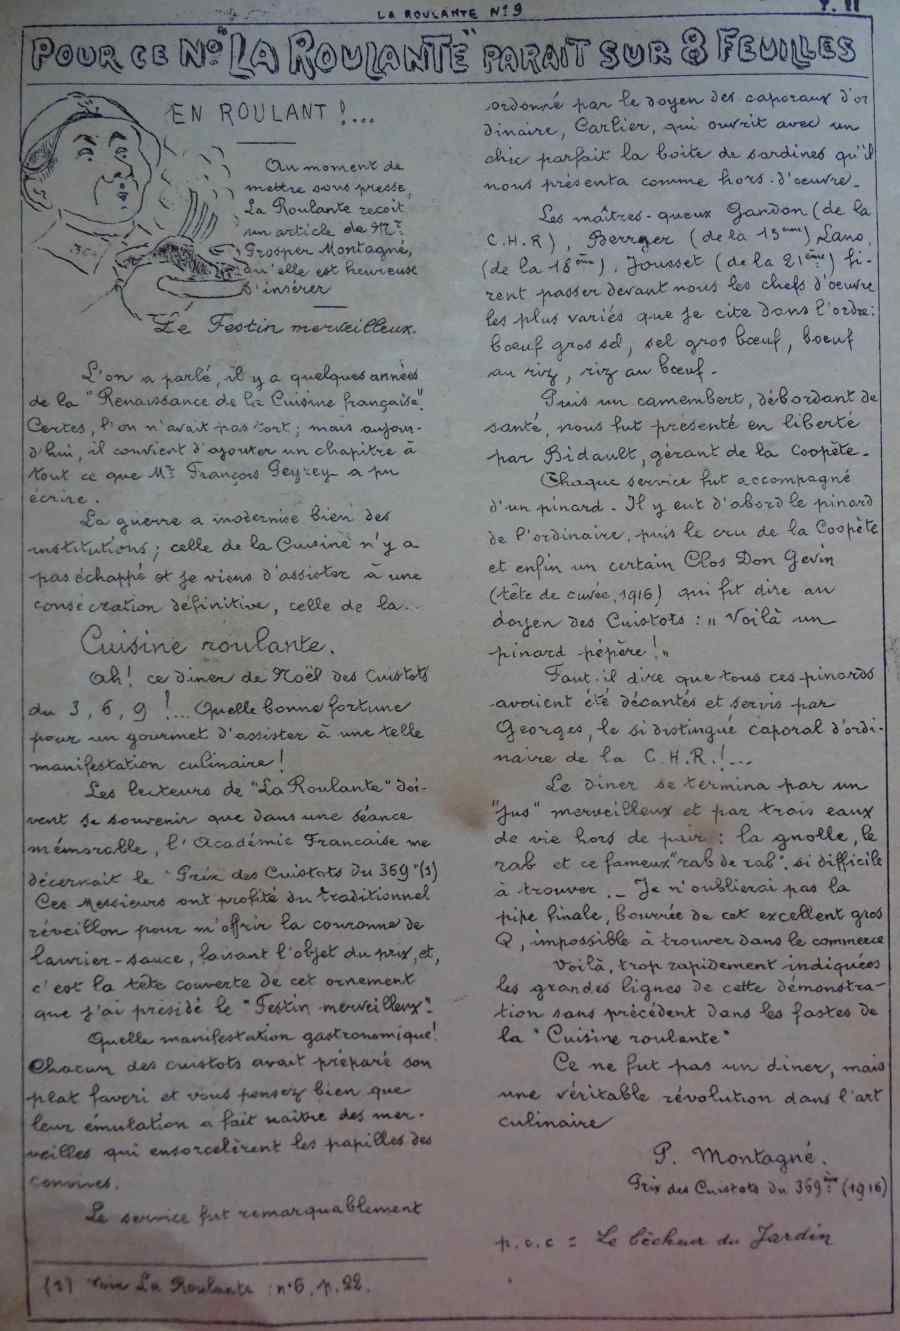 LA ROULANTE N°9
P. 11
POUR CE No "LA ROULANTE" PARAIT SUR 8 FEUILLES
EN ROULANT !...
Au moment de
mettre sous presse,
La Roulante reçoit
un article de Mr
Prosper Montagné,
qu'elle est heureuse
d'insérer
Le Festin merveilleux.
L'on a parlé, il y a quelques années
de la "Renaissance de la Cuisine française".
Certes, l'on n'avait pas tort ; mais aujour-
d'hui, il convient d'ajouter un chapitre à
tout ce que Mr François Peyrey a pu
écrire.
La guerre a modernisé bien des
institutions ; celle de la Cuisine n'y a
pas échappé et je viens d'assister à une
consécration définitive, celle de la...
Cuisine roulante.
Ah! ce diner de Noël des Cuistots
du 3, 6, 9 !... Quelle bonne fortune
pour un gourmet d'assister à une telle
manifestation culinaire !
Les lecteurs de "La Roulante" doi-
vent se souvenir que dans une séance
mémorable, l'Académie Francaise me
décernait le "Prix des Cuistots du 369" (1)
Ces Messieurs ont profité du traditionnel
réveillon pour m'offrir la couronne de
laurier-sauce, faisant l'objet du prix, et,
c'est la tête couverte de cet ornement
que j'ai présidé le "Festin merveilleux".
Quelle manifestation gastronomique!
Chacun des cuistots avait préparé son
plat favori et vous pensez bien que
leur émulation a fait naitre des mer-
veilles qui ensorcelèrent les papilles des
convives.
Le service fut remarquablement
(1) Voir La Roulante : n°6, p.22.
ordonné par le doyen des caporaux d'or
dinaire, Carlier, qui ouvrit avec un
chic parfait la boite de sardines qu'il
nous présenta comme hors-d'oeuvre.
Les maîtres-queux Gandon (de la
C.H.R), Berrger (de la 15ème) Lano,
(de la 18ème), Jousset (de la 21ème) fi-
rent passer devant nous les chefs d'oeuvre
les plus variés que je cite dans l'ordre:
boeuf gros sel, sel gros bœuf, boeuf
au riz, riz au bœuf.
Puis un camembert, débordant de
santé, nous fut présenté en liberté
par Bidault, gérant de la Coopète.
Chaque service fut accompagné
d'un pinard. Il y eut d'abord le pinard
de l'ordinaire, puis le cru de la Coopète
et enfin un certain Clos Don Gevin
(tête de cuvée, 1916) qui fit dire au
doyen des Cuistots : " Voilà un
pinard pépère ! "
Faut-il dire que tous ces pinards
avaient été décantés et servis par
Georges, le si distingué caporal d'ordi-
naire de la C.H.R.!...
Le diner se termina par un
"jus" merveilleux et par trois eaux
de vie hors de pair : la gnolle, le
rab et ce fameux "rab de rab", si difficile
à trouver. _ Je n'oublierai pas la
pipe finale, bourrée de cet excellent gros
Q, impossible à trouver dans le commerce
Voilà, trop rapidement indiquées
les grandes lignes de cette démonstra-
tion sans précédent dans les fastes de
la "Cuisine roulante"
Ce ne fut pas un diner, mais
une véritable révolution dans l'art
culinaire
P. Montagné.
Prix des Cuistots du 369ème (1916)
p.c.c = Le bêcheur du Jardin